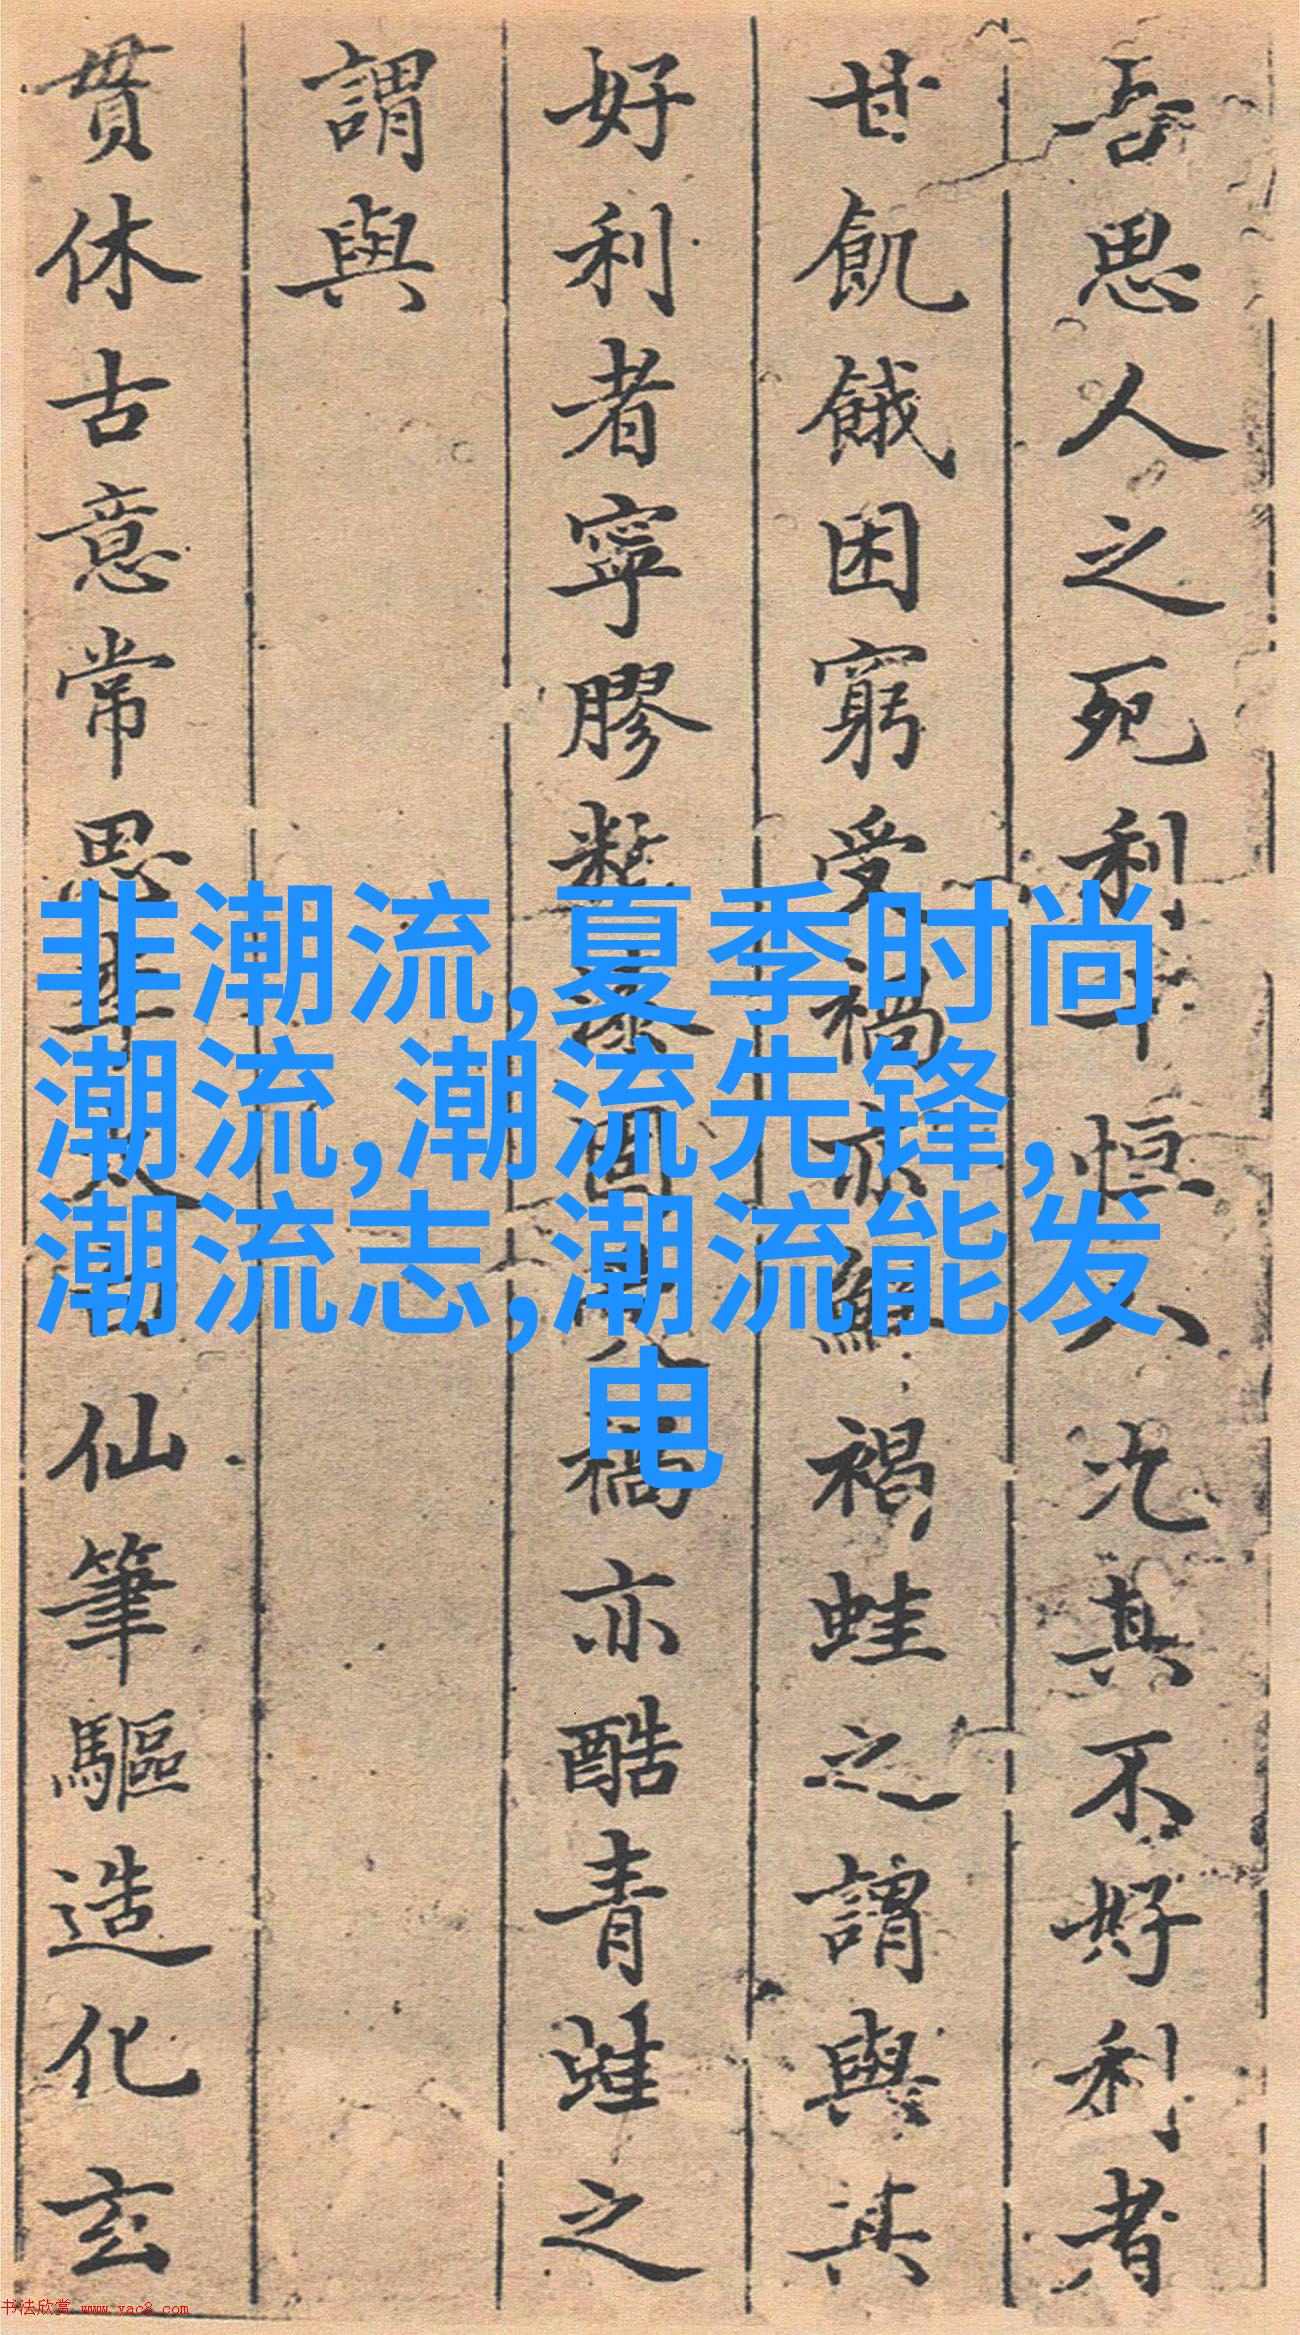 非潮流,夏季时尚
潮流,潮流先锋,
潮流志,潮流能发
电
吾思人之死利十恒八况其不好利者
甘飢餓困窮受禍亦鮮褐蛙之謂與其
好利者寧膠固禍亦酷青蛙之
謂與
貫休古意常思李太白仙筆驅造化玄
书法欣赏 www.yac8.com